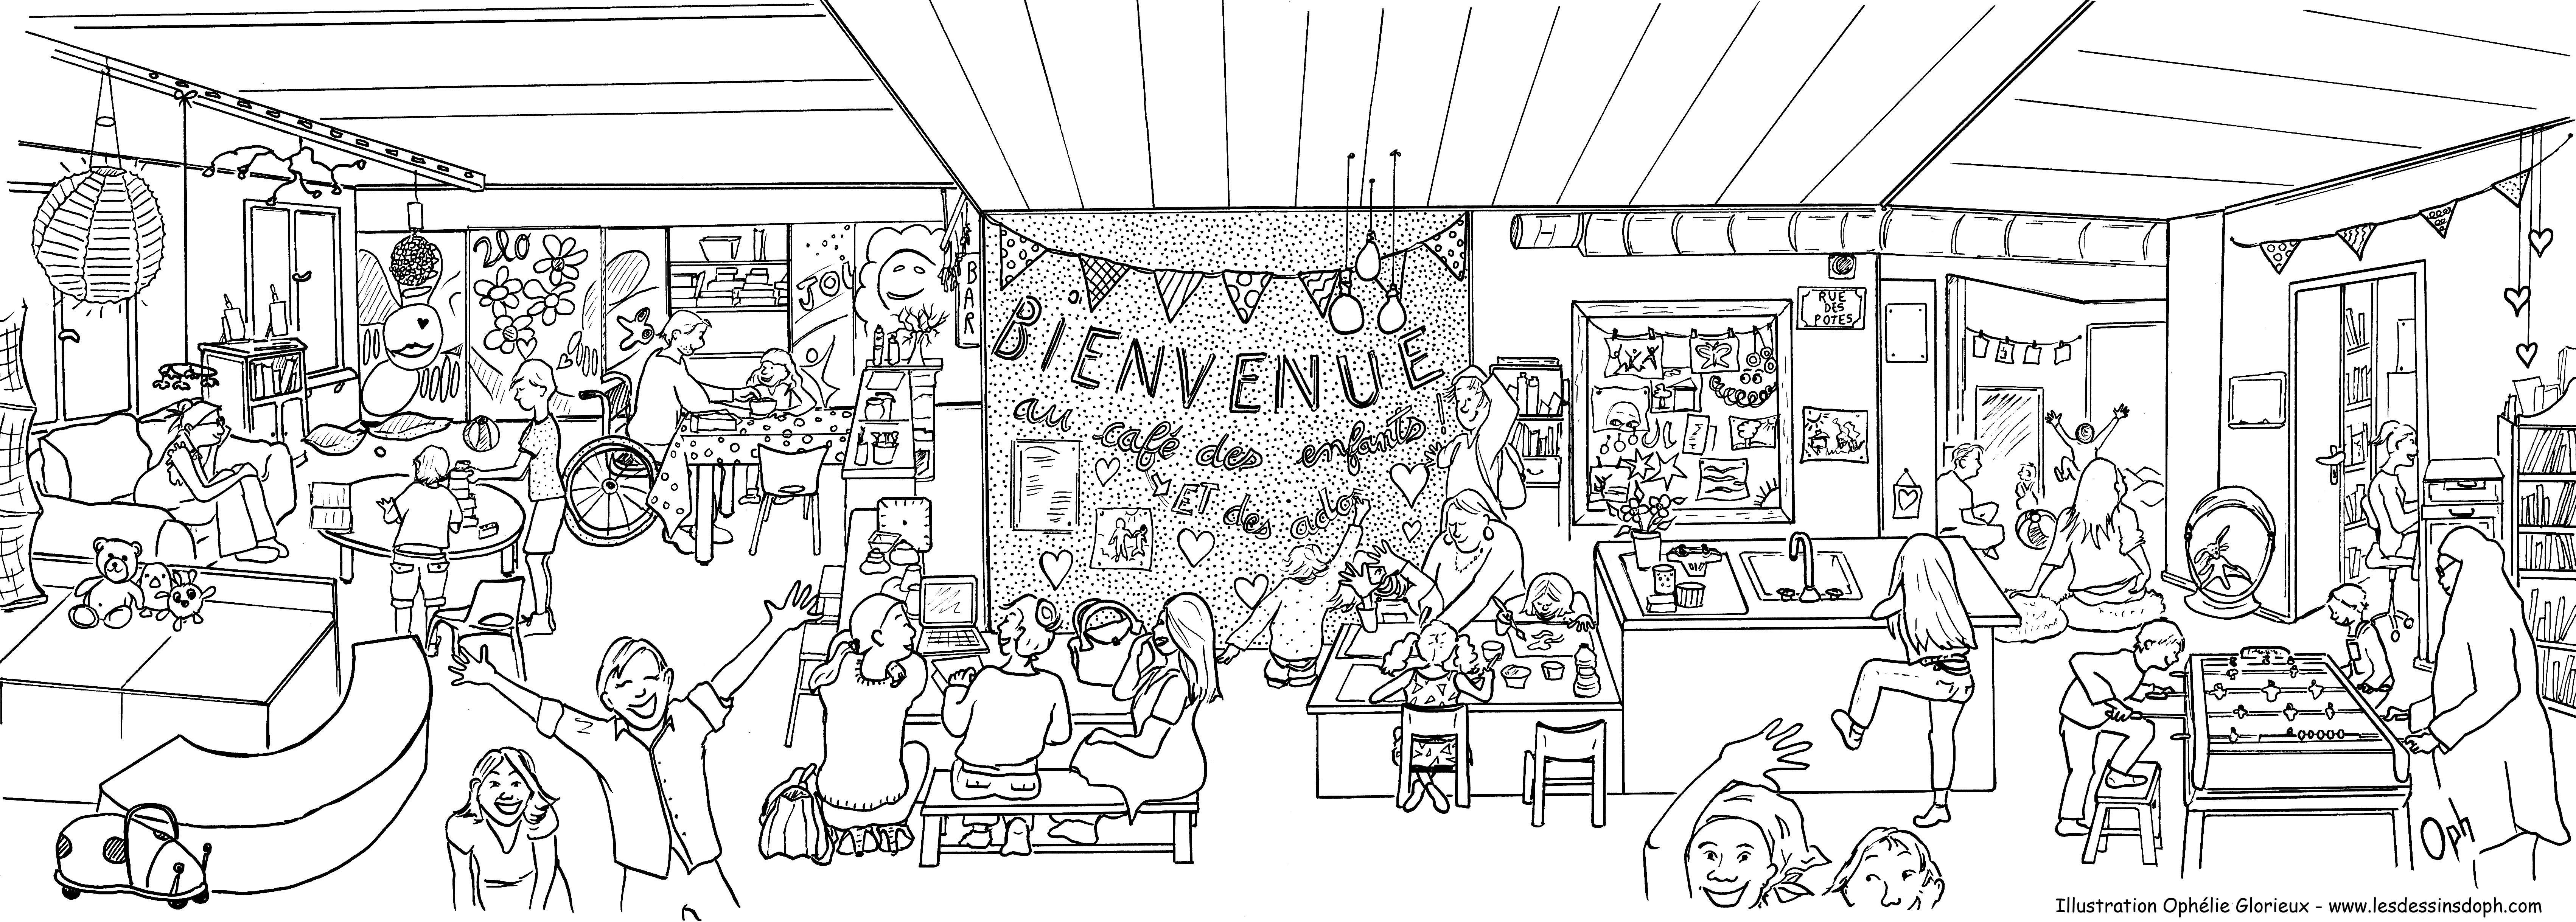 JOU
BAR
BIENVENUE
au café des enfants !
ET des ados
RUE
DES
POTES
Oph
Illustration Ophélie Glorieux - www.lesdessinsdoph.com